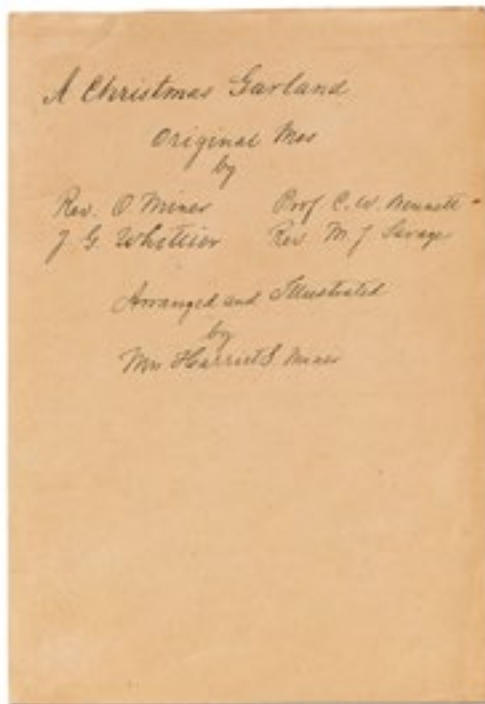 A Christmas Garland
Original Mss
by
Rev. O Miner Prof C. W. Bennett
J. G. Whittier Rev M. J Savage
Arranged and Illustrated
by
Mrs Harriet S Miner